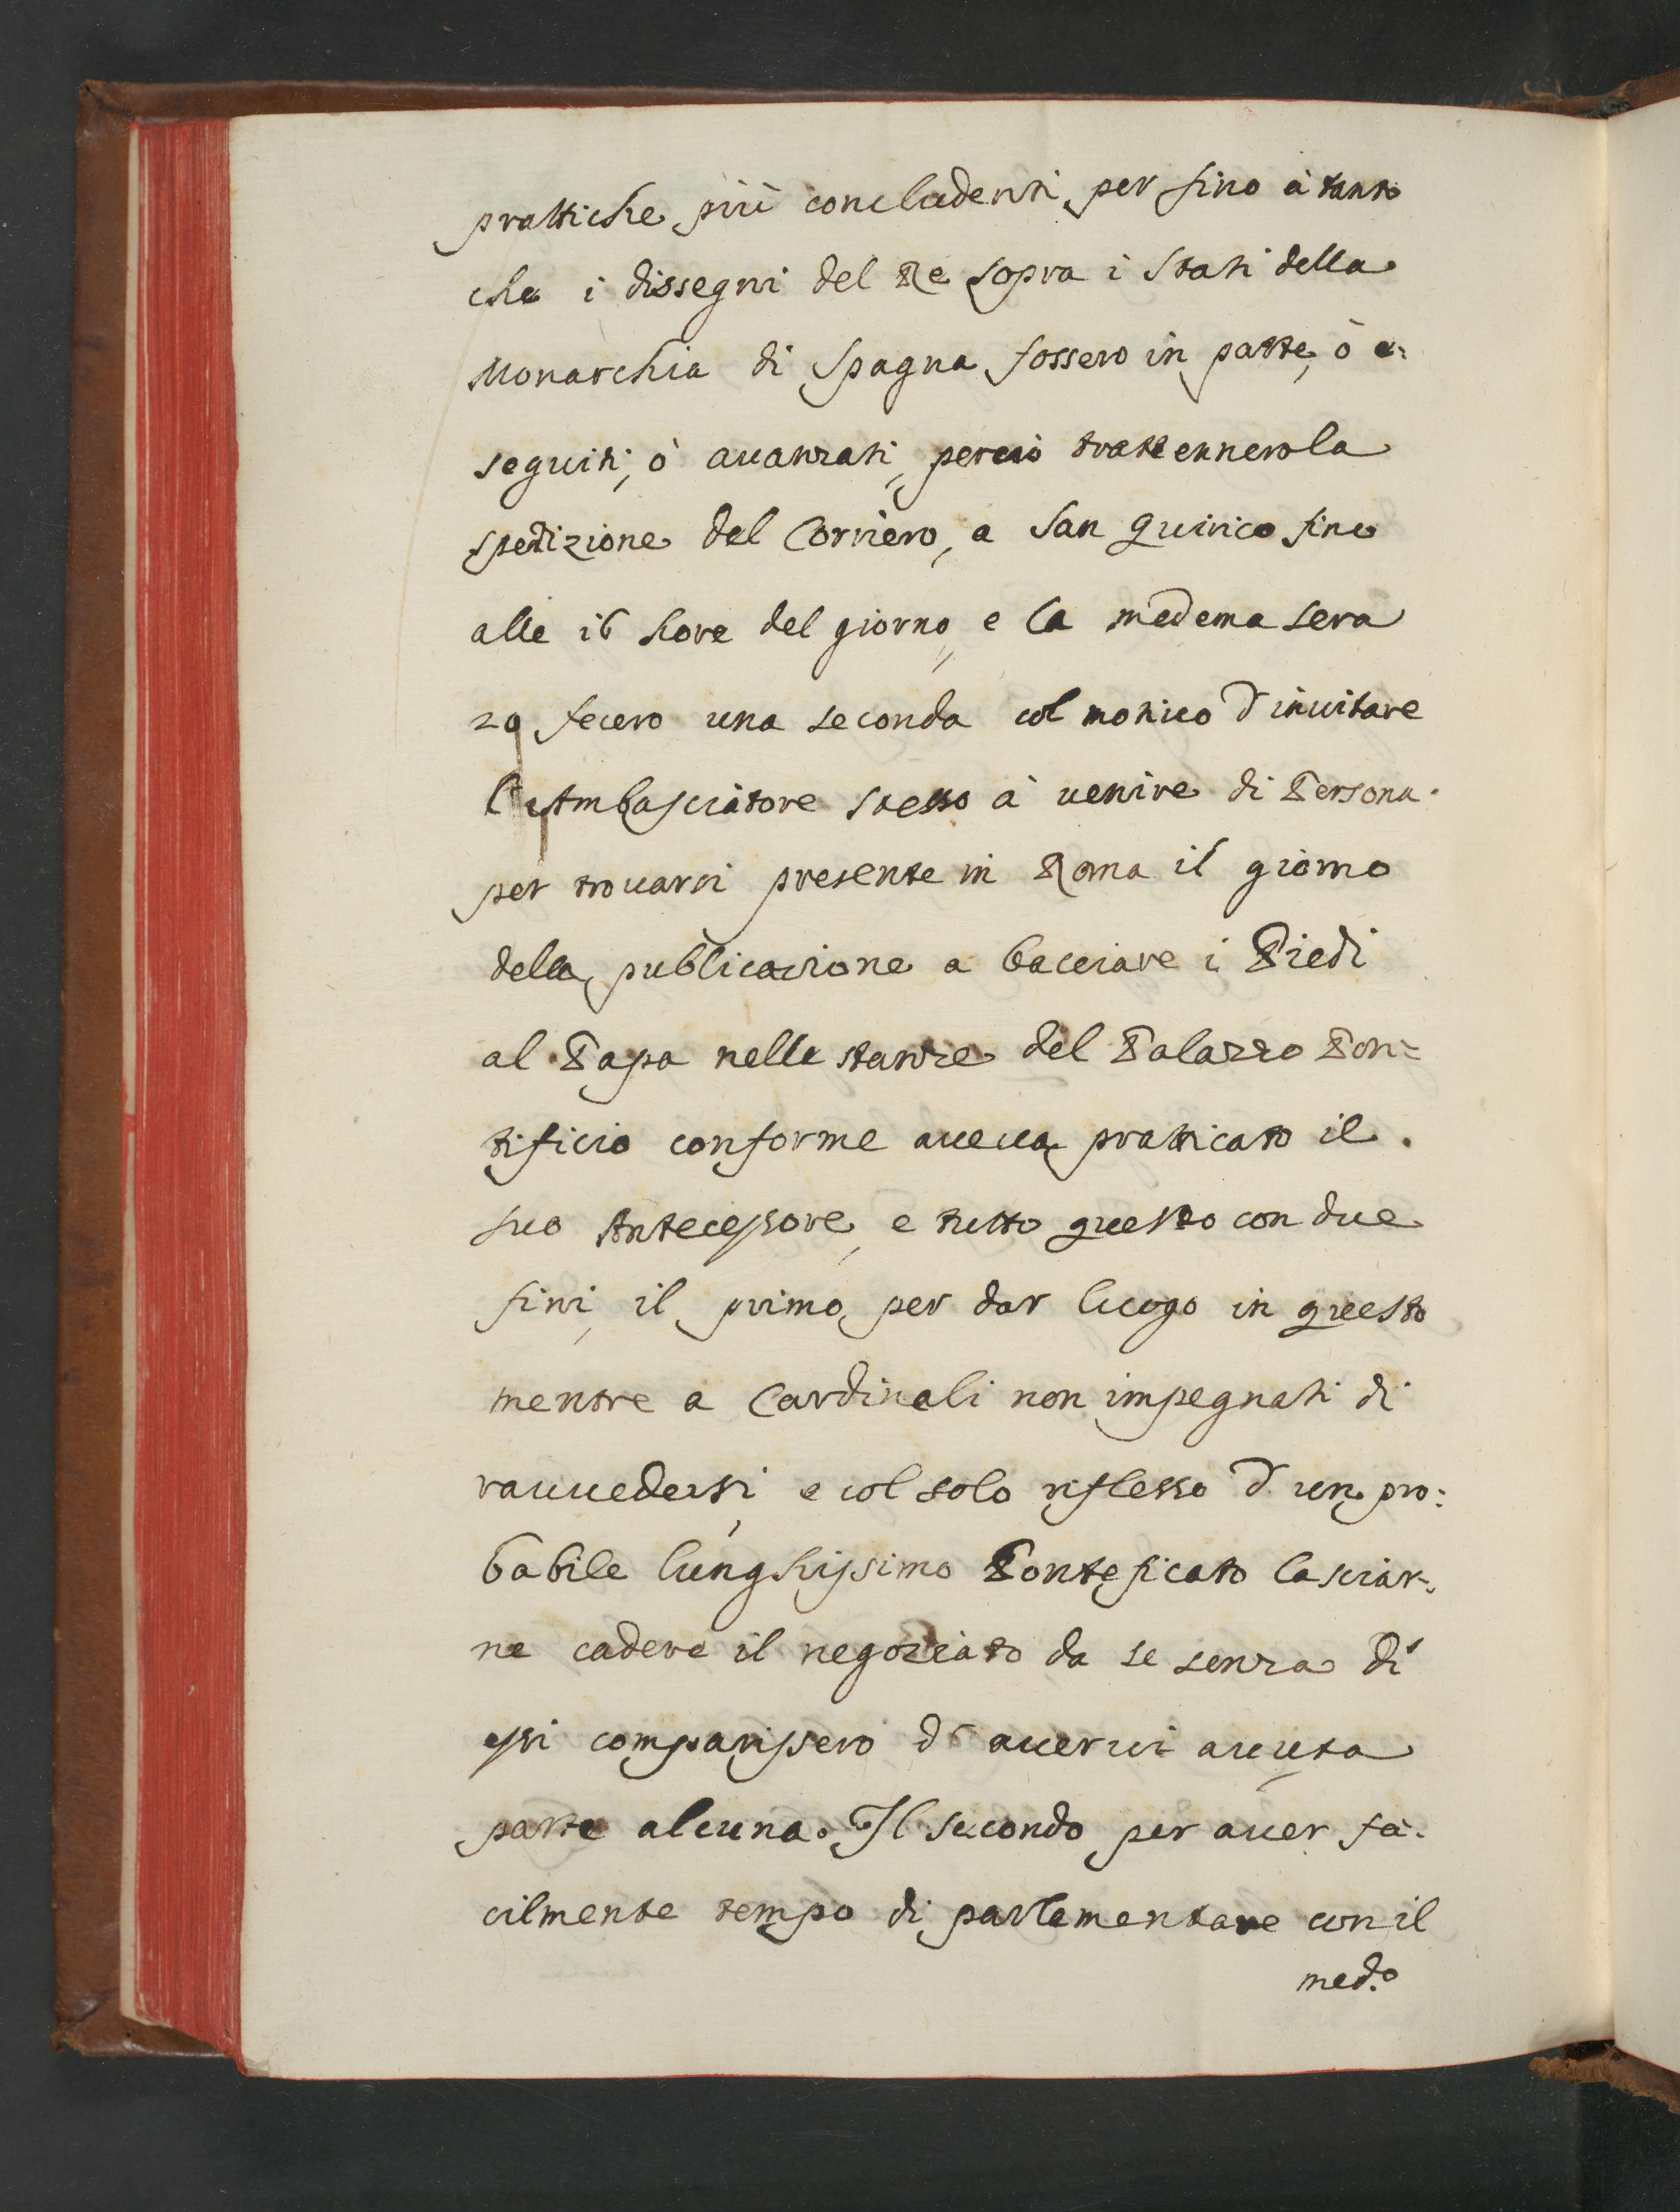 prattiche più concludenti per fino à tanto
che i dissegni del Re sopra i Stati della
Monarchia di Spagna fossero in parte, ò e=
seguiti, ò auanzati, perciò trattennero la
spedizione del Corriero, a San Quirico fino
alle 16 hore del giorno, e la medema sera
29 fecero una seconda col motiuo d'inuitare
l'Ambasciatore stesso à uenire di Persona
per trouarsi presente in Roma il giorno
della publicazione a bacciare i Piedi
al Papa nelle stanze del Palazzo Pon=
tificio conforme aueua pratticato il
suo Antecessore, e tutto questo con due
fini, il primo per dar luogo in questo
mentre a Cardinali non impegnati di
rauuedersi, e col solo riflesso d'un pro=
babile lunghissimo Ponteficato lasciar=
ne cadere il negoziato da se senza di
essi comparissero d'auerui auuta
parte alcuna. Il secondo per auer fa=
cilmente tempo di parlamentare con il
med.o